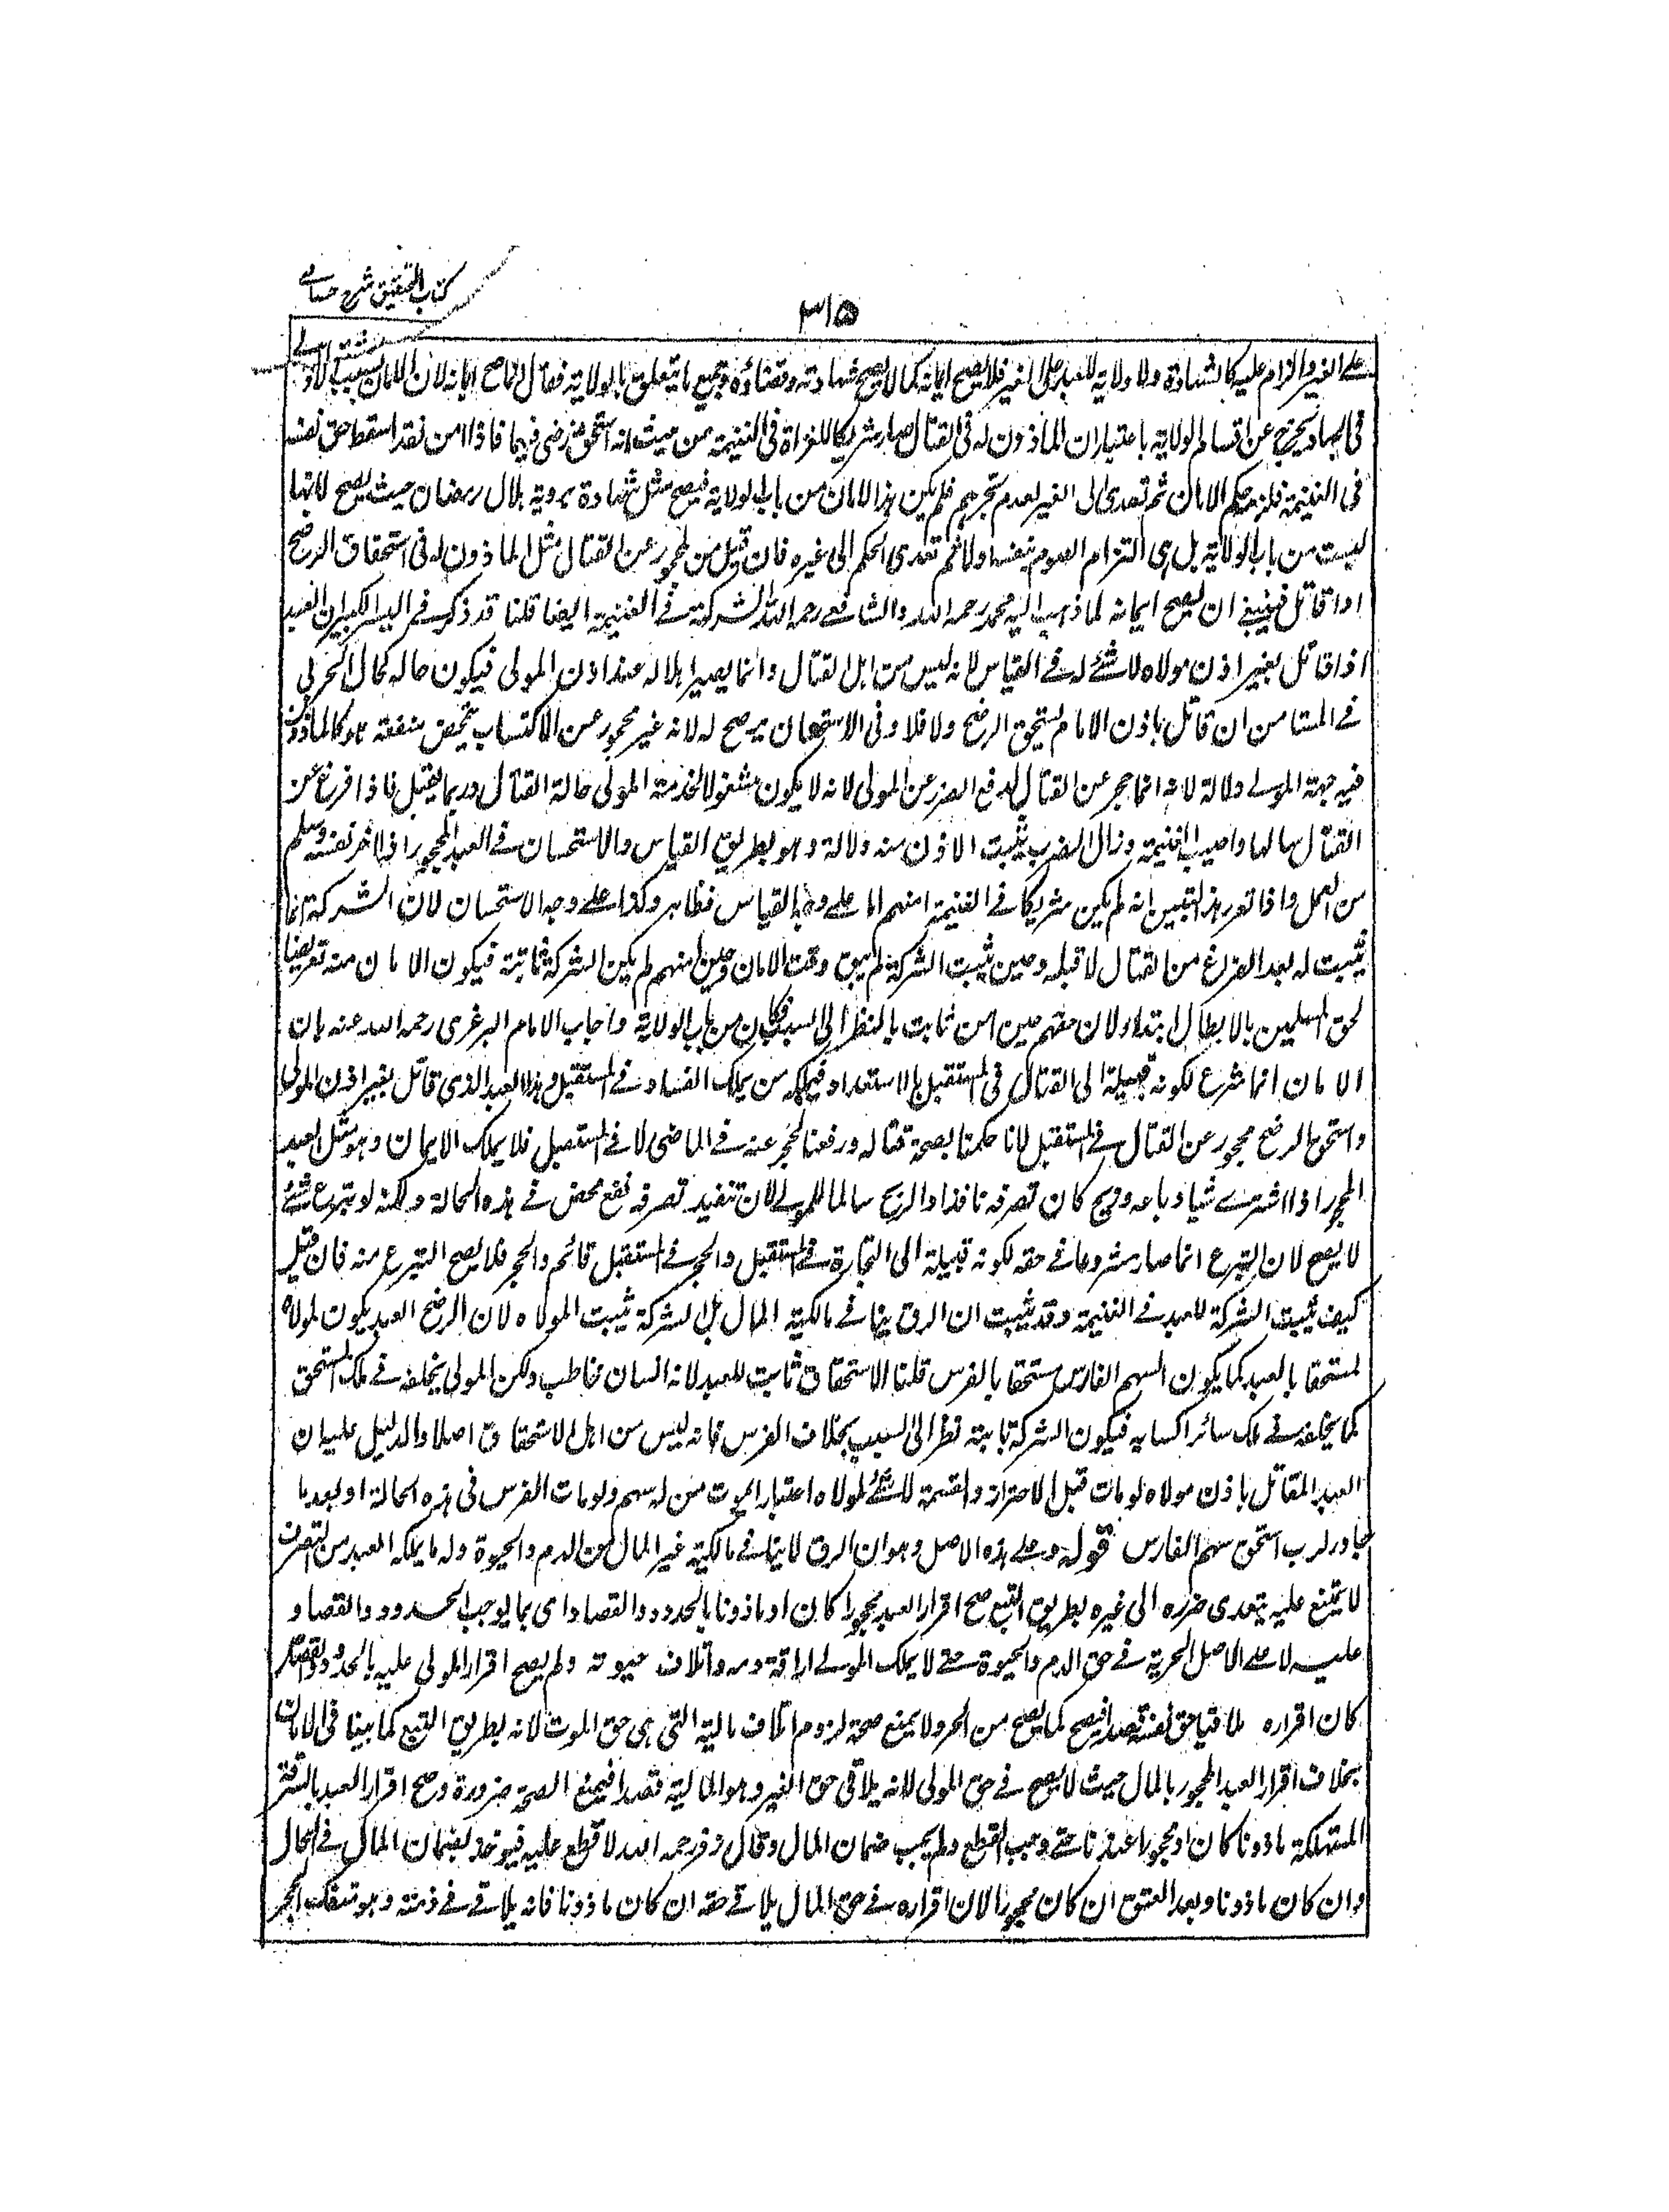 كتاب التحقيق شرح حسامى
٣١٥
على الغير والزام عليه كالشهادة ولا ولاية للعبد على الغير فلا يصح ايمانه كما لا يصح شهادته وقضاؤه وجميع ما يتعلق بالولاية فقال انما صح ايمانه لان الامان بسبب الاذن
فى الجهاد يخرج عن اقسام الولاية باعتبار ان الماذون له فى القتال صار شريكا للغزاة فى الغنيمة من حيث انه استحق رضخا فيها فاذا امن فقد اسقط حق نفسه
فى الغنيمة فلزمه حكم الامان ثم تعدى الى الغير لعدم تجزيه فلم يكن هذا الامان من باب الولاية فيصح مثل شهادة بروية هلال رمضان حيث يصح لانها
ليست من باب الولاية بل هى التزام الصوم بنفسه اولا ثم تعدى الحكم الى غيره فان قيل من المحجور عن القتال مثل الماذون له فى استحقاق الرضخ
اذا قاتل فينبغى ان يصح ايمانه كما ذهب اليه محمد رحمه الله والشافعى رحمه الله للشركة فى الغنيمة ايضا قلنا قد ذكر فى السير الكبير ان العبد
اذا قاتل بغير اذن مولاه لا شئ له فى القياس لانه ليس من اهل القتال وانما يصير اهلا له عند اذن المولى فيكون حاله كحال الحربى
فى المستامن ان قاتل باذن الامام يستحق الرضخ والا فلا وفى الاستحسان يرضخ له لانه غير محجور عن الاكتساب يتمحض منفعته هو كالماذون
فيه جهة المولى دلالة لانه انما حجر عن القتال لدفع الضرر عن المولى لانه لا يكون مشغولا بخدمة المولى حالة القتال وربما يقتل فاذا فرغ عن
القتال سالما واصيب الغنيمة وزال الضرر يثبت الاذن منه دلالة وهو بطريق القياس والاستحسان فى العبد المحجور اذا اجر نفسه وسلم
من العمل واذا تقرر هذا تبين انه لم يكن شريكا فى الغنيمة منهم اما على وجه القياس فظاهر وكذا على وجه الاستحسان لان الشركة انما
تثبت له بعد الفراغ من القتال لا قبله وحين تثبت الشركة لم يبق وقت الامان وحين امنهم لم يكن الشركة ثابتة فيكون الامان منه تعريضا
لحق المسلمين بالابطال ابتداء ولان حقهم حين امن ثابت بالنظر الى السبب فكان من باب الولاية واجاب الامام البرغرى رحمه الله عنه بان
الامان انما شرع لكونه وسيلة الى القتال فى المستقبل بالاستعداد فيملكه من يملك القتال فى المستقبل وهذا العبد الذى قاتل بغير اذن المولى
واستحق الرضخ محجور عن القتال فى المستقبل لانا حكمنا بصحة قتاله ورفعنا الحجر عنه فى الماضى لا فى المستقبل فلا يملك الايمان وهو مثل العبد
المحجور اذا اشترى شيا وباعه وربح كان تصرفه نافذا والربح سالما للمولى لان تنفيذ تصرفه نفع محض فى هذه الحالة ولكنه لو تبرع بشئ
لا يصح لان التبرع انما صار مشروعا فى حقه لكونه وسيلة الى التجارة فى المستقبل والحجر فى المستقبل قائم والحجر فلا يصح التبرع منه فان قيل
كيف تثبت الشركة للعبد فى الغنيمة وقد ثبت ان الرق ينافى مالكية المال بل الشركة تثبت المولاه لان الرضخ العبد يكون لمولاه
مستحقا بالعبد كما يكون السهم الفارس مستحقا بالفرس قلنا الاستحقاق ثابت للعبد لانه انسان مخاطب ولكن المولى يخلفه فى ملك المستحق
كما يخلفه فى ملك سائر اكسابه فيكون الشركة ثابتة نظرا الى السبب بخلاف الفرس فانه ليس من اهل الاستحقاق اصلا والدليل عليه ان
العبد المقاتل باذن مولاه لو مات قبل الاحراز والقسمة لا شئ لمولاه اعتبارا بموت من له سهم ولو مات الفرس فى هذه الحالة او بعد ما
جاوز الدرب استحق سهم الفارس قوله وعلى هذه الاصل وهو ان الرق لا ينافى مالكية غير المال من الدم والحيوة وله ما يملكه العبد من التصرف
لا يمتنع عليه بتعدى ضرره الى غيره بطريق التبع صح اقرار العبد محجورا كان او ماذونا بالحدود والقصاص اى بما يوجب الحدود والقصاص
عليه لا على الاصل الحرية فى حق الدم والحيوة حتى لا يملك المولى اراقة دمه واتلاف حيوته ولم يصح اقرار المولى عليه بالحدود والقصاص
كان اقراره ملاقيا حق نفسه قصدا فيصح كما يصح من الحر ولا يمنع صحة لزوم اتلاف مالية التى هى حق المولى لانه بطريق التبع كما بينا فى الامان
بخلاف اقرار العبد المحجور بالمال حيث لا يصح فى حق المولى لانه يلاقى حق الغير وهو المالية قصدا فيمنع الصحة ضرورة وصح اقرار العبد بالسرقة
المستهلكة ماذونا كان او محجورا عندنا حتى وجب القطع ولم يجب ضمان المال وقال زفر رحمه الله لا قطع عليه فيوخذ بضمان المال فى الحال
وان كان ماذونا وبعد العتق ان كان محجورا لان اقراره فى حق المال يلاقى حقه ان كان ماذونا فانه يلاقى فى ذمته وهو منفك الحجر